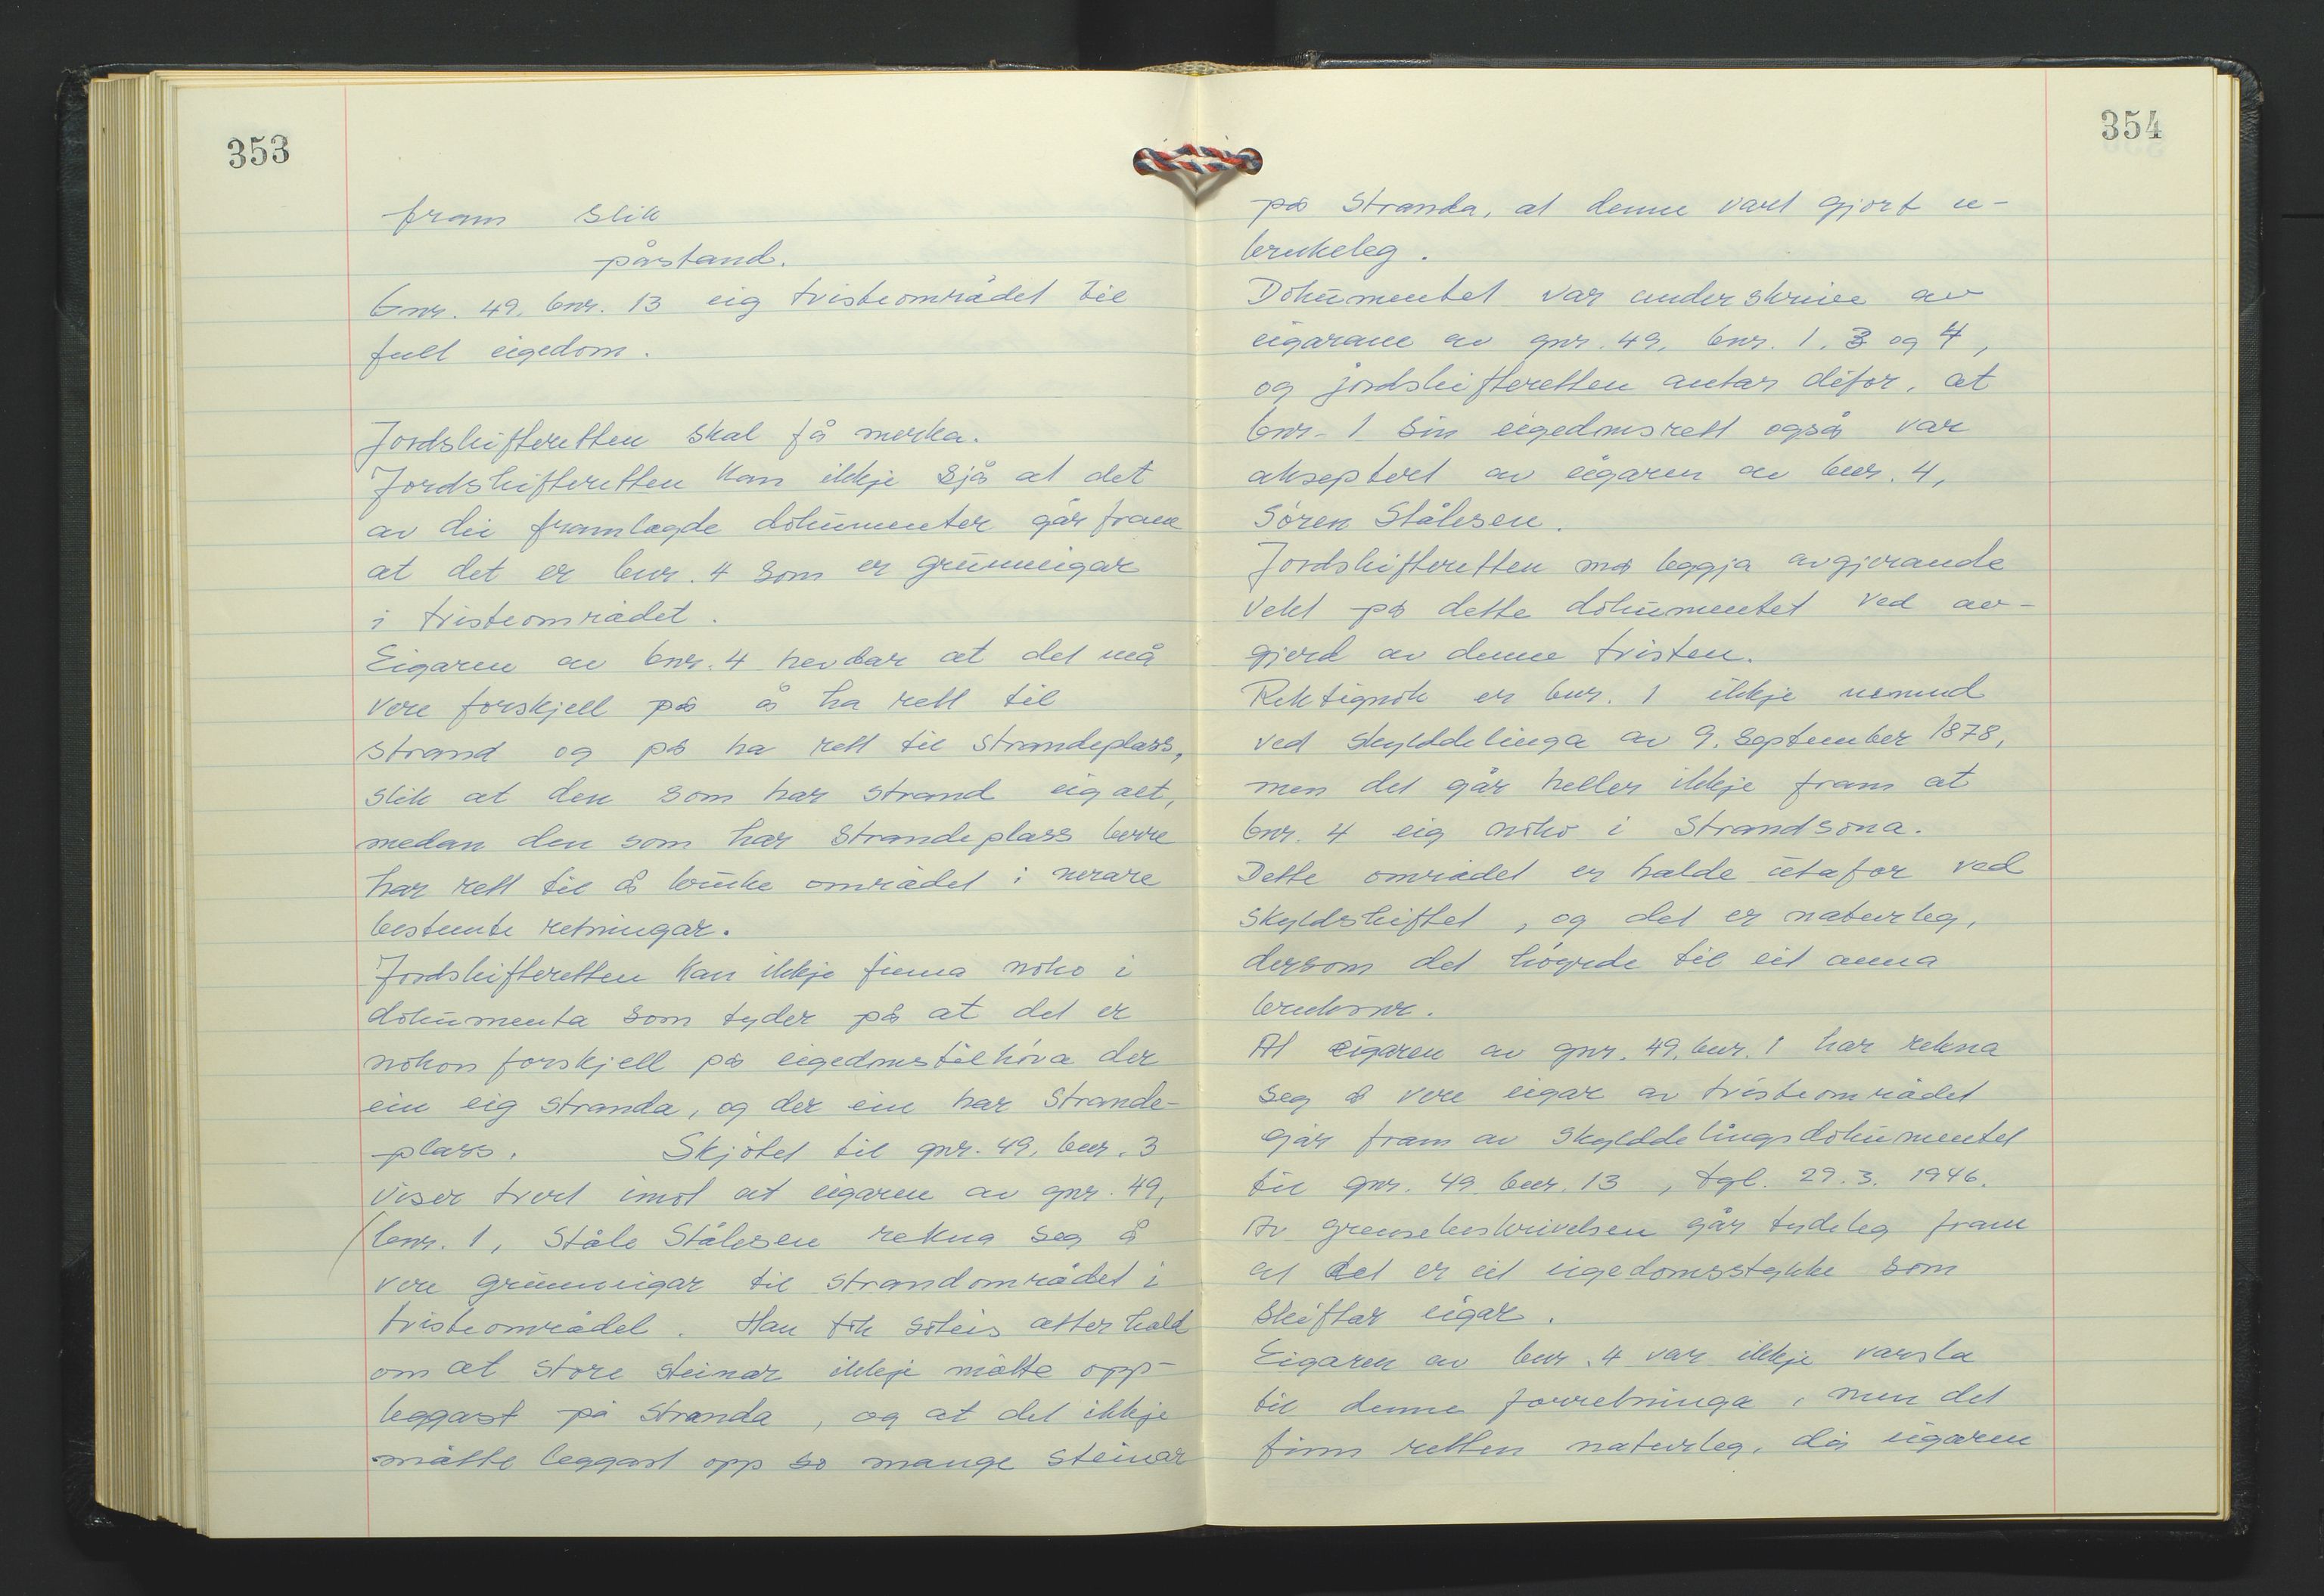 353
fram slik
påstand.
Gnr. 49, bnr. 13 eig tvisteområdet til
full eigedom.
Jordskifteretten skal få merka.
Jordskifteretten kan ikkje sjå at det
av dei framlagde dokumenter går fram
at det er bnr. 4 som er grunneigar
i tvisteområdet.
Eigaren av bnr. 4 hevdar at det må
vere forskjell på å ha rett til
strand og på ha rett til strandeplass,
slik at den som har strand eig alt,
medan den som har strandeplass berre
har rett til å bruke området i nerare
bestemte retningar.
Jordskifteretten kan ikkje finna noko i
dokumenta som tyder på at det er
nokon forskjell på eigedomstilhöva der
ein eig stranda, og der ein har strande-
plass. Skjötet til gnr. 49, bnr. 3
viser tvert imot at eigaren av gnr. 49,
bnr. 1, Ståle Stålesen rekna seg å
vere grunneigar til strandområdet i
tvisteområdet. Han tok soleis atterhald
om at store steinar ikkje måtte opp-
leggast på stranda, og at det ikkje
måtte leggast opp so mange steinar
354
på stranda, at denne vart gjort u-
brukeleg.
Dokumentet var underskrive av
eigarane av gnr. 49, bnr. 1, 3 og 4,
og jordskifteretten antar difor, at
bnr. 1 sin eigedomsrett også var
akseptert av eigaren av bnr. 4,
Sören Stålesen.
Jordskifteretten må leggja avgjerande
vekt på dette dokumentet ved av-
gjerd av denne tvisten.
Riktignok er bnr. 1 ikkje nemnd
ved skylddelinga av 9. september 1878,
men det går heller ikkje fram at
bnr. 4 eig noko i strandsona.
Dette området er halde utafor ved
skyldskiftet, og det er naturleg,
dersom det höyrde til eit anna
bruksnr.
At eigaren av gnr. 49, bnr. 1 har rekna
seg å vere eigar av tvisteområdet
går fram av skylddelingsdokumentet
til gnr. 49 bnr. 13, tgl. 29.3.1946.
Av grensebeskrivelsen går tydeleg fram
at det er eit eigedomsstykke som
skiftar eigar.
Eigaren av bnr. 4 var ikkje varsla
til denne forretninga, men det
finn retten naturleg, då eigaren